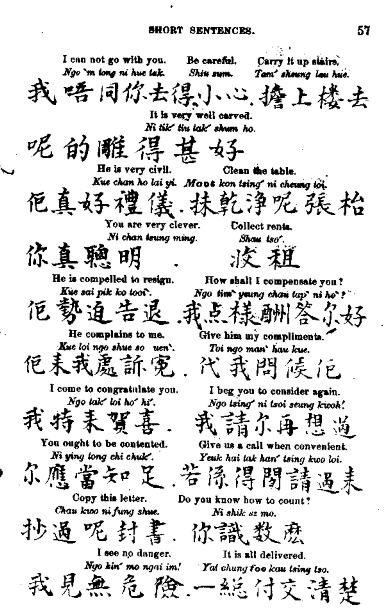 SHORT SENTENCES. 57
I can not go with you. Be careful. Carry it up stairs.
Ngo ʻm tong ni hue tak. Shiu sum. Tamʻ sheung lau hue.
我唔同你去得小心.擔上楼去
It is very well carved.
Ni tikʻ tiu takʻ shum ho.
呢的雕得甚好
He is very civil. Clean the table.
Kue chan ho lai yi. Moot kon tsingʻ ni cheung toi.
佢真好禮儀.抹乾浄呢張枱
You are very clever. Collect rents.
Ni chan tsung ming. Shau tsoʻ.
你真聰明.收租
He is compelled to resign. How shall I compensate you?
Kue sai pik ko tooiʻ. Ngo timʻ yeung chau tapʻ ni hoʻ?
佢勢迫告退.我点樣酬答尔好
He complains to me. Give him my compliments.
Kue loi ngo shue so uenʻ. Toi ngo manʻ hau kue.
佢耒我處訴寃.代我問候佢
I come to congratulate you. I beg you to consider again.
Ngo takʻ loi hoʻ hiʻ. Ngo tsingʻ ni tsoi seung kwohʻ.
我特耒賀喜.我請尔再想過
You ought to be contented. Give us a call when convenient.
Ni ying tong chi chukʻ. Yeuk hai tak hanʻ tsing kwo loi.
尔應當知足.若係得閒請過耒
Copy this letter. Do you know how to count?
Chau kwo ni fung shue. Ni shik sz mo.
抄過呢封書.你識数麽
I see no danger. It is all delivered.
Ngo kinʻ mo ngai imʻ! Yat chung foo kau tsing tso.
我見無危險.一総付交清楚